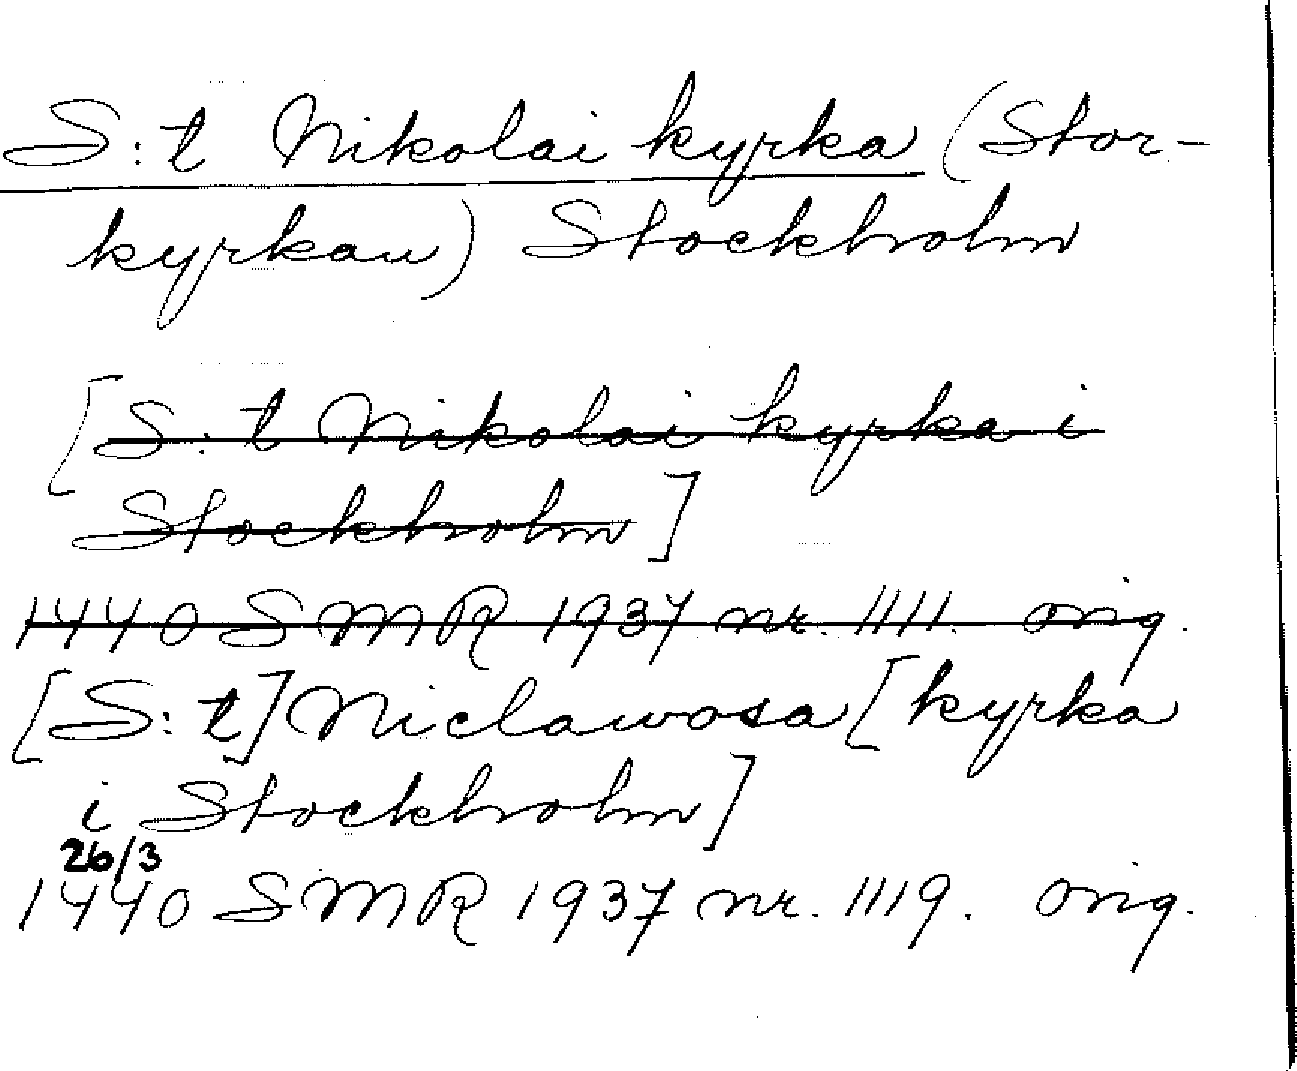 S:t Nikolai kyrka (Stor-
kyrkan) Stockholm
[S:t Nikolai kyrka i
Stockholm]
1440 SMR 1937 nr. 1111. orig.
[S:t] Niclawosa [kyrka
i Stockholm]
26/3
1440 SMR 1937 nr. 1119. orig.